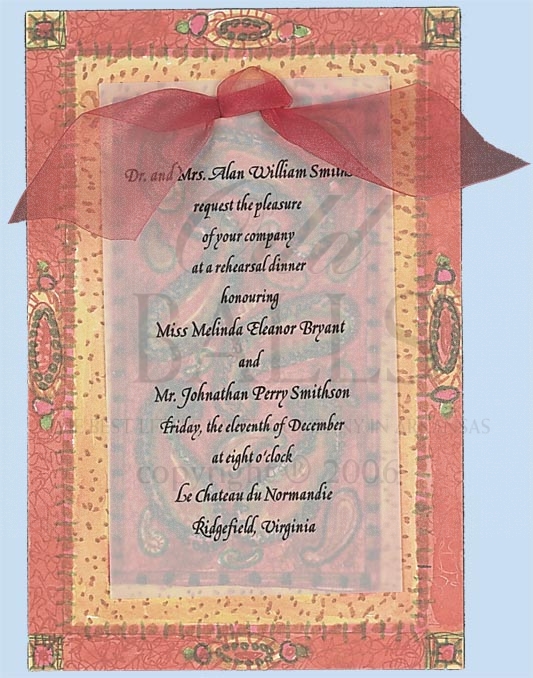 Dr. and Mrs. Alan William Smithson
request the pleasure
of your company
at a rehearsal dinner
honouring
Miss Melinda Eleanor Bryant
and
Mr. Johnathan Perry Smithson
Friday, the eleventh of December
at eight o'clock
Le Chateau du Normandie
Ridgefield, Virginia
BALLS
copyright ® 2006